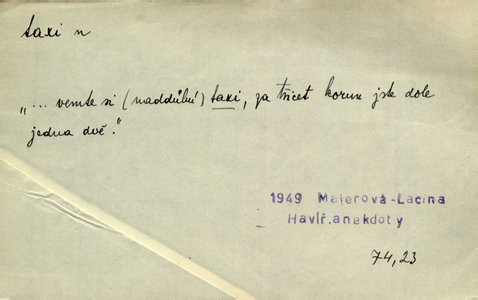 taxi n
„... vemte si (naddůlní) taxi, za třicet korun jste dole
jedna dvě."
1949 Majerová-Lacina
Havíř.anekdoty
74,23